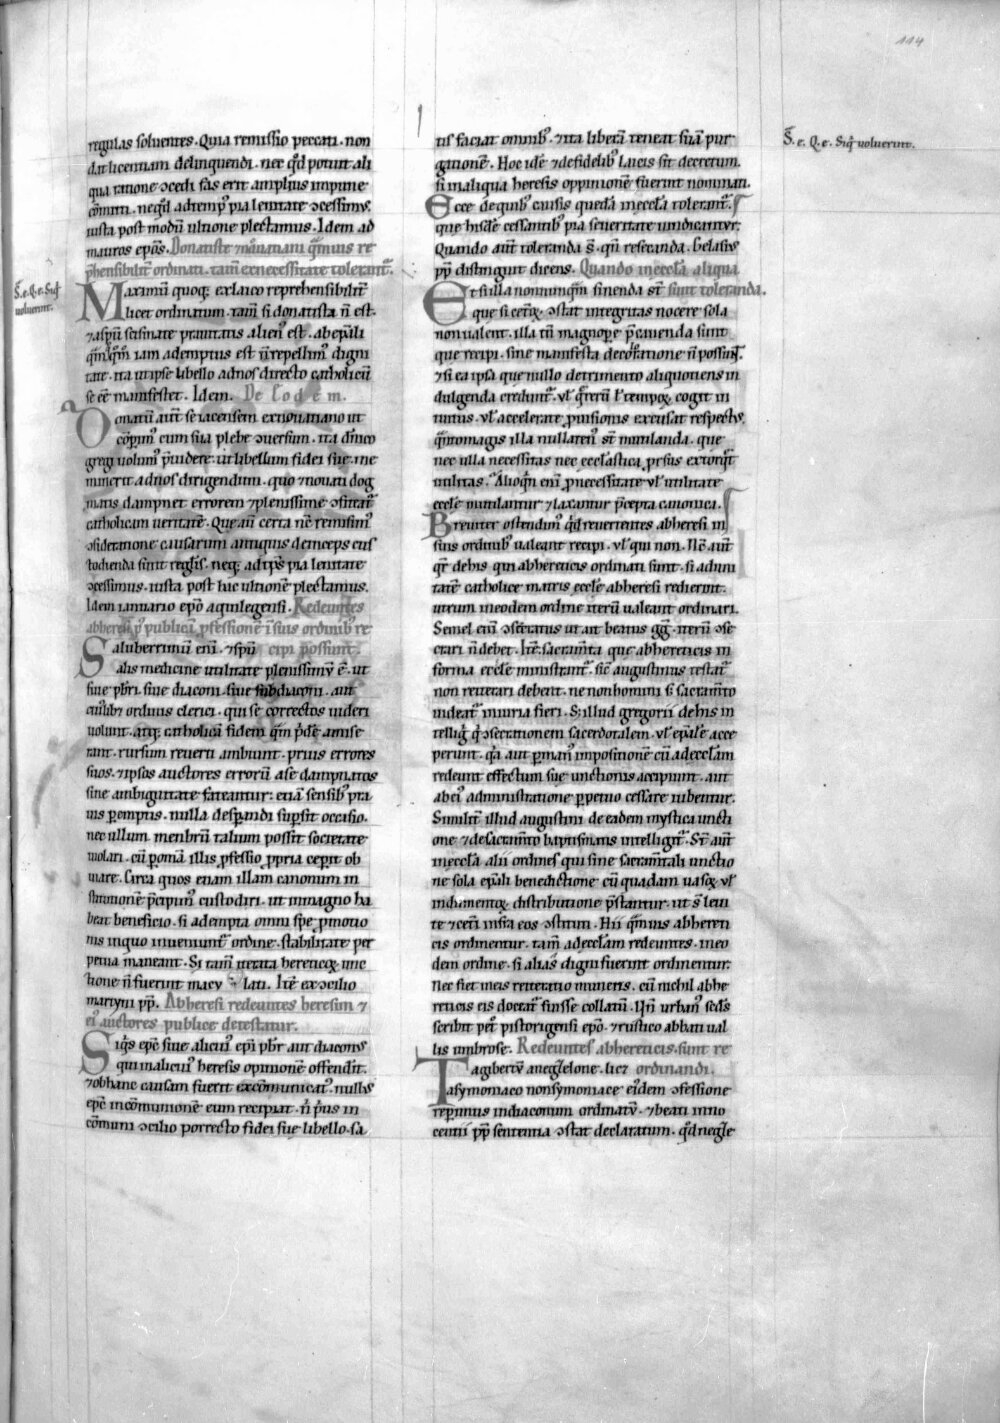 114
regulas soluentes. Quia remissio peccati. non
dat licentiam delinquendi. nec qd potuit ali
qua ratione ɔcedi fas erit amplius impune
cōmitti. neq̣ ad temp' pia lenitate ɔcessim'.
iusta post modū ultione plectamus. Idem ad
mauros epōs. Donatiste 7 nouatiani quis re
p̄hensibilit̄ ordinati. tam̄ ex necessitate tolerant'.
S. e. Q. e. Siq̇
uoluerint.
Maximū quoq; ex laico reprehensibilit̄
licet ordinatum. tam̄ si donatista n̄ est.
7 a spū scismate prauitatis alien' est. ab epāli
iam ademptus est n̄ repellim' digni
tate. ita ut ipse libello ad nos directo catholicū
se eē manifestet. Idem. De Eodem.
Donatū aut̄ salicensem ex nouatiano ut
cōperim' cum sua plebe ɔuersum. ita dn̄ico
gregi uolum' p̄uidere. ut libellum fidei sue. me
minerit ad nos dirigendum. quo 7 nouati dog
matis dampnet errorem 7 plenissime ɔfiteat'
catholicam ueritatē. Que aū certa nc̄ remisim'
ɔsideratione causarum antiquis deinceps cus
todienda sunt reglis. neq; ad tps̄ pia lenitate
ɔcessimus. iusta post huc ultionē plectamus.
Idem ianuario epō aquilegensi. Redeuntes
ab heresi p' publicā p̄fessionē ī suis ordinib' re
Saluberrimū eni. 7 spū cipi possunt.
alis medicine utilitate plenissimū ē. ut
siue pbr̄i. siue diaconi. siue subdiaconi. aut
cui'lib7 ordinis clerici. qui se correctos uideri
uolunt. atq; catholicā fidem quā p'dē amise
rant. rursum reuerti ambiunt. prius errores
suos. 7 ipsos auctores errorū a se dampnatos
sine ambiguitate fateantur: ut sensib' pra
uis peremptis. nulla desperandi supsit occasio.
nec ullum menbrū talium possit societate
uiolari. cū p omīa illis pfessio ppria ceperit ob
uiare. Circa quos etiam illam canonum in
stitutionē p̄cipim' custodiri. ut in magno ha
beat beneficio. si adempta omni spe pmotio
nis in quo inueniunt' ordine. stabilitate per
petua maneant. Si tam̄ iterata hereticoꝝ unc
tione n̄ fuerint macu lati. Itē ex ɔcilio
martini pp̄. Ab heresi redeuntes heresim 7
ei' auctores publice detestatur.
Siq̇s epc̄ siue alicui' epī pbr̄ aut diacon'
qui in alicui' heresis opinionē offendit.
7 ob hanc causam fuerit excōmunicat'. nullus
epc̄ in cōmunionē eum recipiat. n̄ prius in
cōmuni ɔcilio porrecto fidei sue libello. sa
tis faciat omnib'. 7 ita liberā teneat suā pur
gationē. Hoc idē 7 de fidelib' laicis sit decretum.
si in aliqua heresis oppinionē fuerint nominati.
S. e. Q. e. Siq̇ uoluerint.
Ecce de quib' causis quedā in eccl'a tolerant'.
que hiscē cessantib' pia seueritate uindicantur.
Quando aut̄ toleranda s̄. qn̄ resecanda. Gelasius
pp̄ distinguit dicens. Quando in eccl'a aliqua
Et si illa nonnunquā sinenda st̄ sunt toleranda.
que si cetōꝝ. ɔstat integritas nocere sola
non ualent. illa tn̄ magnopere p̄cauenda sunt
que recipi. sine manifesta decoloratione n̄ possunt.
7 si ea ipsa que nullo detrimento aliquotiens in
dulgenda credunt'. ul' q̇rerū l' tempoꝝ cogit in
tuitus. ul' accelerate puisionis excusat respectus.
quātomagis illa nullaten' st̄ mutilanda. que
nec ulla necessitas nec eccl'astica prsus extorq̇t
utilitas. Alioq̇n eni pnecessitate ul' utilitate
eccl'e mutilantur 7 laxantur p̄cepta canonica.
Breuiter ostendim' qd reuertentes ab heresi in
suis ordinib' ualeant recipi. ul' qui non. Nc̄ aut̄
qr̄ de his qui ab hereticis ordinati sunt. si ad uni
tatē catholice matris eccl'e ab heresi redierint.
utrum in eodem ordine iterū ualeant ordinari.
Semel eni ɔsecratus ut ait beatus gg̅. iterū ɔse
crari n̄ debet. Itē. sacram̄ta que ab hereticis in
forma eccl'e ministrant'. sic augustinus testat'
non reiterari debent. ne non homini s; sacram̄to
uideat' iniuria fieri. S; illud gregorii de his in
tellig̣ q' ɔsecrationem sacerdotalem. ul' epāle acce
perunt. q'a aut p man' impositionē cū ad eccl'am
redeunt effectum sue unctionis accipiunt. aut
ab ei' administratione ppetuo cessare iubentur.
Similit̄ illud augustini de eadem mystica uncti
one 7 de sacram̄to baptismatis intelligit'. St̄ aut̄
in eccl'a alii ordines qui sine sacram̄tali unctio
ne sola epāli benedictione cū quadam uasoꝝ ul'
indumentoꝝ distributione p̄stantur. ut s̄ leui
te 7 ceti infra eos ɔstituti. Hii quis ab hereti
cis ordinentur. tam̄ ad eccl'am redeuntes. in eo
dem ordine. si alias digni fuerint ordinentur.
Nec fiet in eis reiteratio muneris. cū nichil ab he
reticis eis doceat' fuisse collatū. Un̄ urban' sed's
scribit pet' pistorigensi epō. 7 rustico abbati ual
lis umbrose. Redeuntes ab hereticis. sunt re
Tagibertū aneglelone. lic7 ordinandi.
a symoniaco non symoniace ei'dem ɔfessione
reperimus in diaconum ordinatū. 7 beati inno
centii pp̄ sententia ɔstat declaratum. qd negle